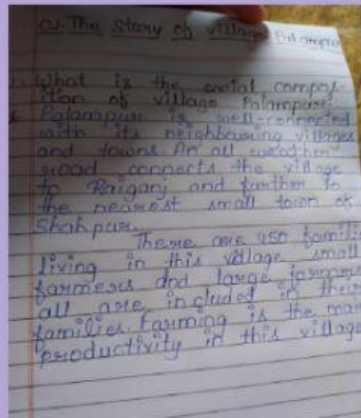 The Story of village Palampur
What is the social compos-
ition of village Palampur.
Palampur is well-connected
with its neighbouring villages
and towns. An all weather
road connects the village
to Raiganj and further to
the nearest small town of
Shahpur.
There are 450 famili
living in this village small
farmers and large farmers
all are included in their
families. Farming is the main
productivity in this village